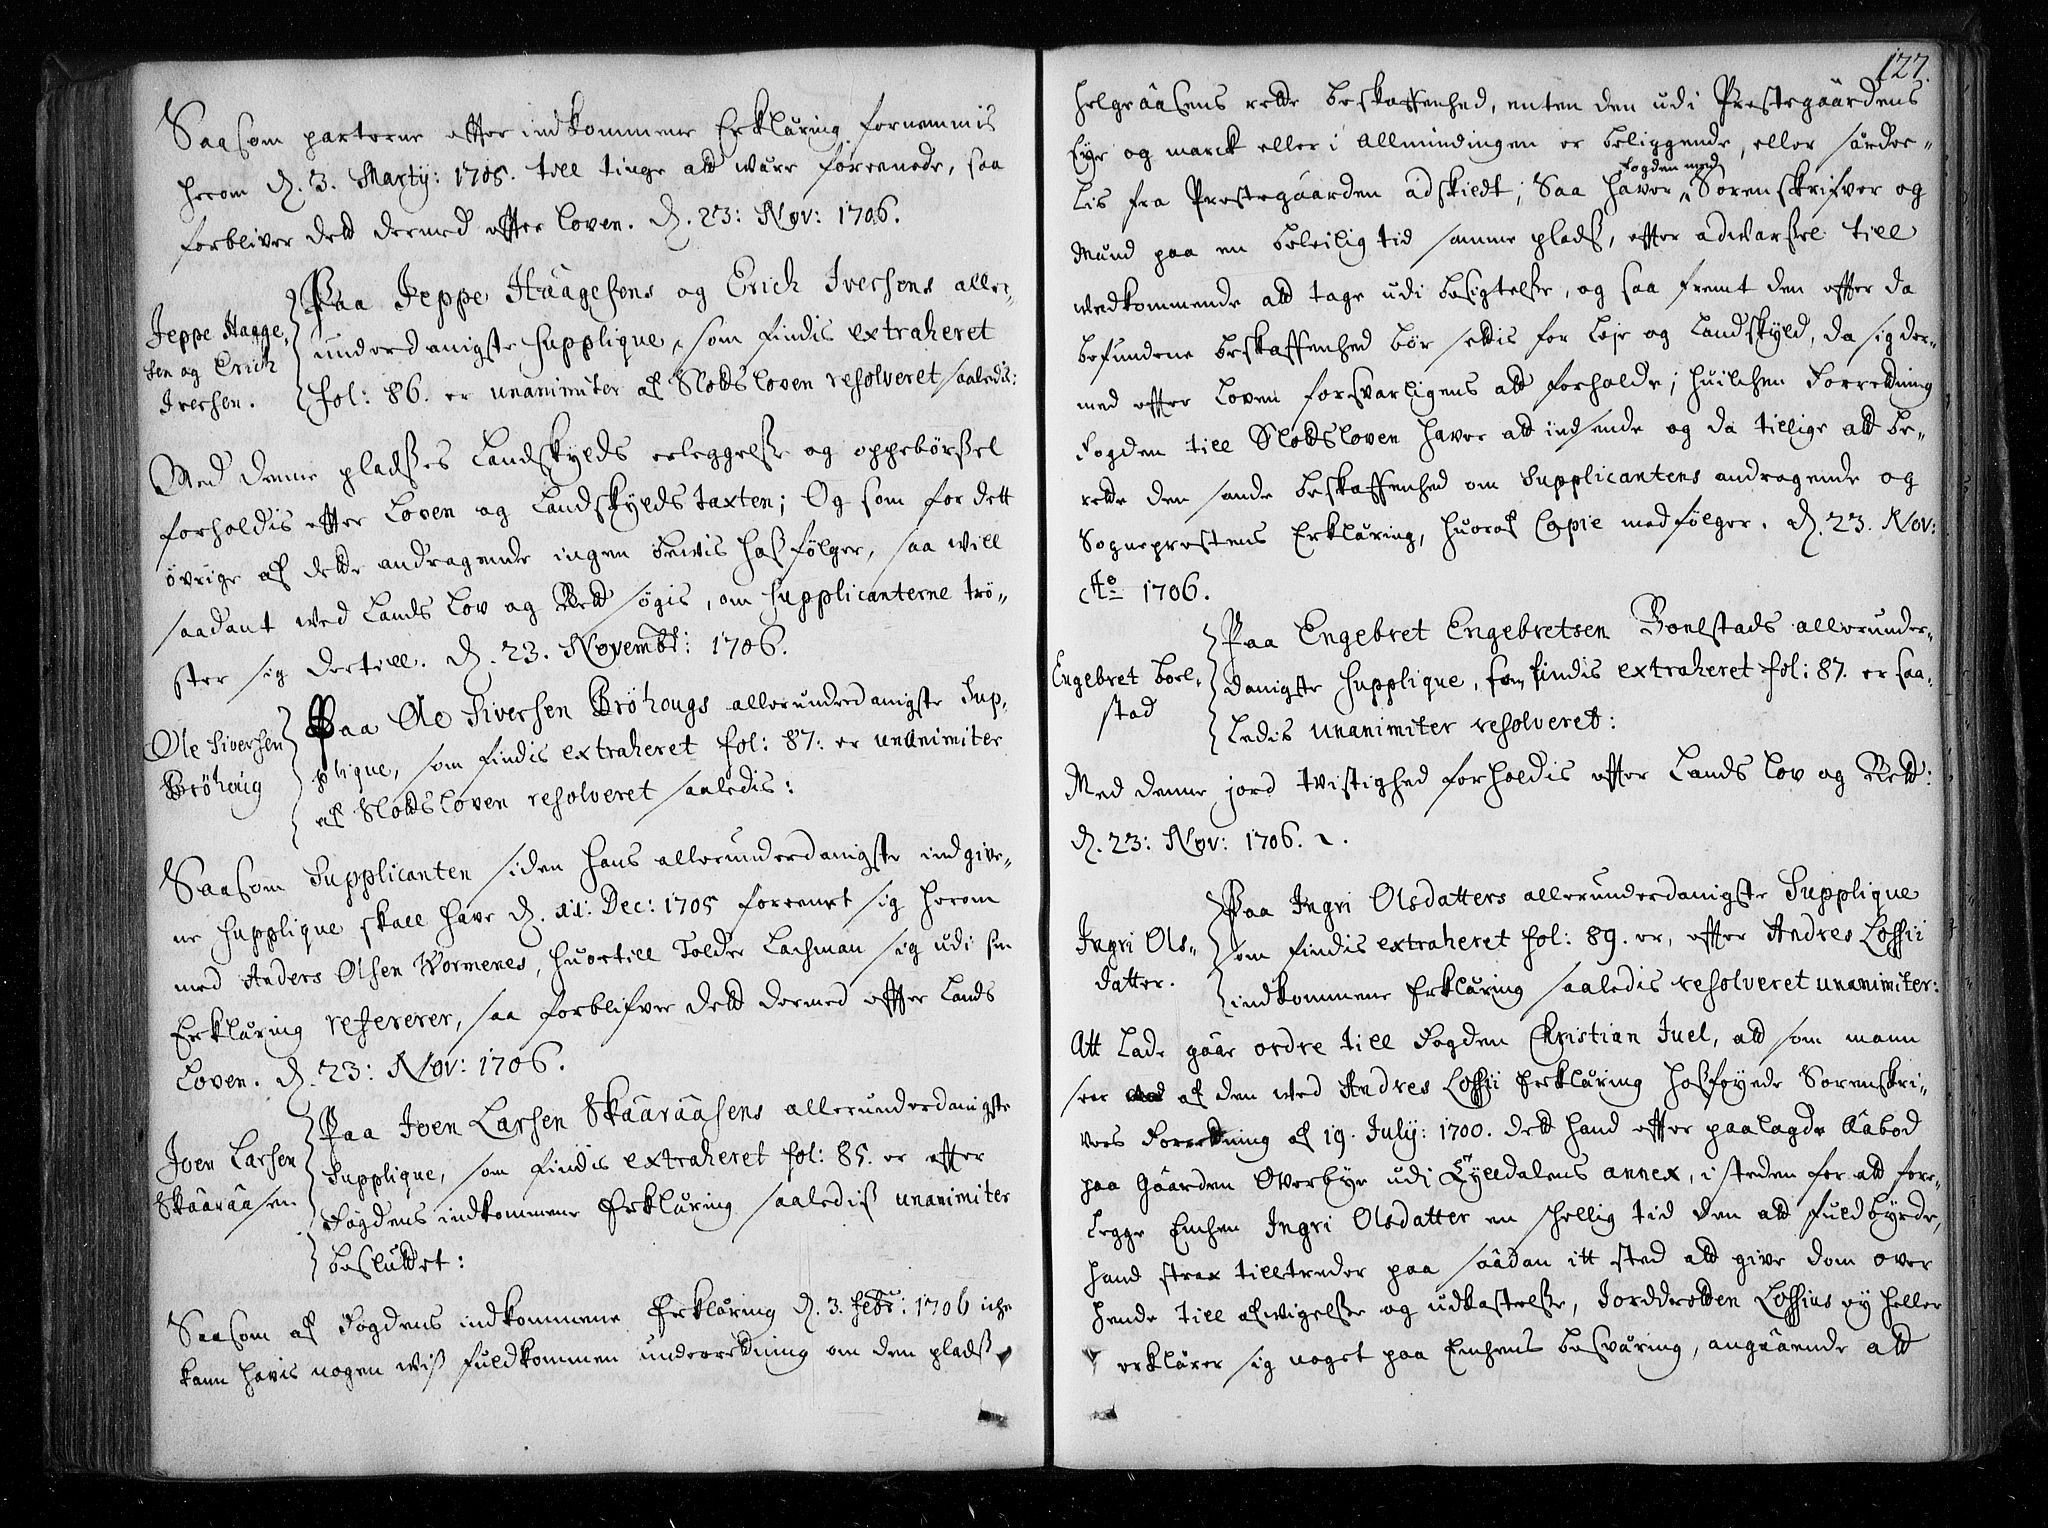 Saasom parterne effter indkommene Erklæring fornemmis
herom d. 3. Martij: 1705. till tinge att være foreenede, saa
forbliver dett dermed effter loven. d. 23: Nov: 1706.
Jeppe Haage-
sen og Erich
Iversen.
Paa Jeppe Haagesens og Erich Iversens aller-
underdanigste supplique, som findis extraheret
fol: 86. er unanimiter af Slottsloven resolveret saaledis:
Med denne pladses Landskylds erleggelse og oppebørsel
forholdis effter Loven og Landskylds taxten; Og som for dett
øvrige af dette andragende ingen bevis hosfølger, saa will
saadant ved Lands Lov og Rett søgis, om supplicanterne trø-
ster sig dertill. d. 23. Novembr: 1706.
Ole Siversen
Brøhoug
Paa Ole Siversen Brøhougs allerunderdanigste Sup-
plique, som findis extraheret fol: 87: er unanimiter
af Slottsloven resolveret saaledis:
Saasom Supplicanten siden hans allerunderdanigste indgive-
ne supplique skall have d. 11: Dec: 1705 foreenet sig herom
med Anders Olsen Wormenes, huortill Tolder Lachman sig udi sin
Erklæring refererer, saa forblifver dett dermed effter Lands
Loven. d. 23: Nov: 1706.
Joen Larsen
Skaaraasen
Paa Joen Larsen Skaaraasens allerunderdanigste
Supplique, som findis extraheret fol: 85. er effter
Fogdens indkommene Erklæring saalediß unanimiter
besluttet:
Saasom af Fogdens indkommene Erklæring d. 3. Febr: 1706 iche
kann havis nogen wiß fuldkommen underretning om den pladß
127.
Helgeaasens rette beskaffenhed, enten den udi Prestegaardens
Eye og marck eller i Allmindingen er beliggende, eller særde-
lis fra Prestegaarden adskildt; Saa haver Fogden med Sorenskrifver og
Mænd paa en beleilig tid samme plads, effter adwarsel till
wedkommende att tage udi besigtelse, og saa fremt den effter da
befundene beskaffenhed bør settis for leje og Landskyld, da sig der-
med effter Loven forsvarligens att forholde; huilchen Forretning
Fogden till Slottsloven haver att indsende og da tillige att be-
rette den sande beskaffenhed om Supplicantens andragende og
Sogneprestens Erklæring, huoraf Copie medfølger. d. 23. Nov:
Ao 1706.
Engebret Boel-
stad
Paa Engebret Engebretsen Boelstads allerunder-
danigste supplique, som findis extraheret fol: 87. er saa-
ledis unanimiter resolveret:
Med denne jord twistighed forholdis effter Lands Lov og Rett:
d. 23: Nov: 1706.
Ingri Ols-
datter.
Paa Ingri Olsdatters allerunderdanigste Supplique
som findis extraheret fol: 89. er, effter Andres Lossii
indkommene Erklæring saaledis resolveret unanimiter:
Att lade gaae ordre till Fogden Christian Juel, att som mann
seer af den wed Andres Lossii Erklæring hosføyede Sorenskri-
vers Forretning af 19. July: 1700. dett hand effter paalagde Aabod
paa Gaarden Overbye udi Tylldalens annex, i steden for att fore-
legge Enchen Ingri Olsdatter en skellig tid den att fuldbyrde,
hand strax tilltreder paa saadan itt sted att give dom over
hende till afwigelse og udkastelse, Jorddrotten Lossius ey heller
erklærer sig noget paa Enchens besværing, angaaende att